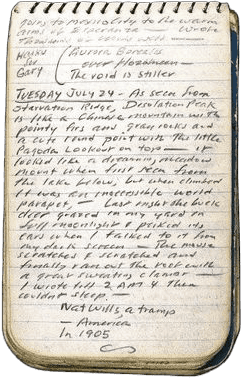 to mexico City to the warm
arms of Esperanza — wrote
Haikus
for
Gary
Aurora Borealis
over Hozomeen —
The void is stiller
TUESDAY JULY 24 — As seen from
Starvation Ridge, Desolation Peak
is like a Chinese mountain with
pointy firs and gray rocks and
a cute round point with the little
Pagoda Lookout on top — it
looked like a dreaming meadow
mount when first seen from
the lake below, but when climbed
it was an inaccessible world
parapet. — Last night the buck
deer grazed in my yard in
full moonlight & pricked his
ears when I talked to it from
my dark screen — The mouse
scratched & scratched and
finally ran out the
a great sweeping clamor —
I wrote till 2 AM & then
couldnt sleep —
Nat Wills, a tramp
— America
In 1905